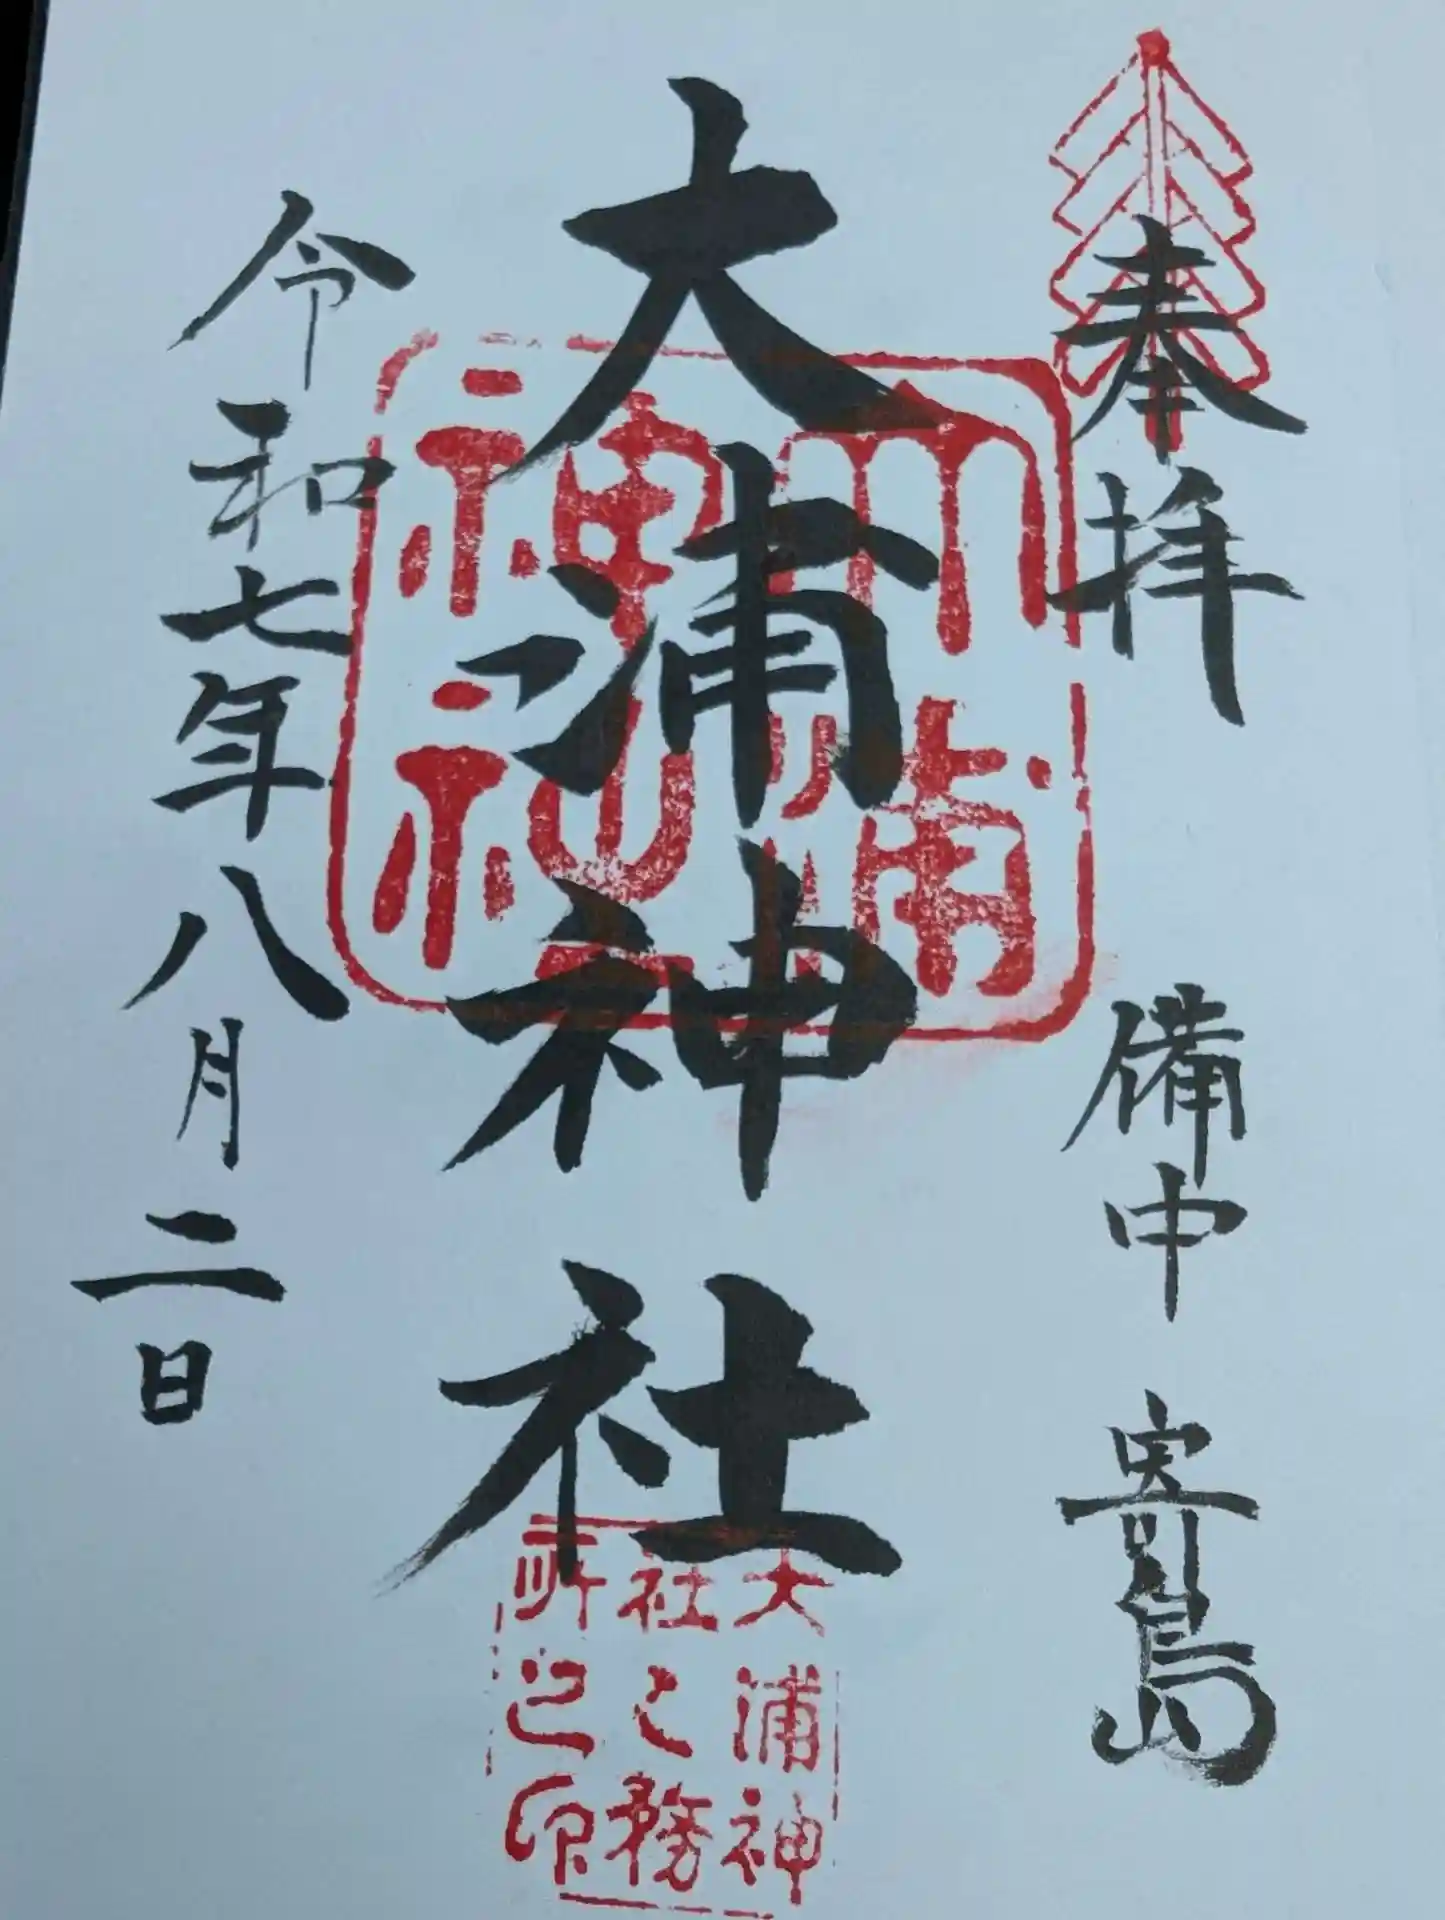 奉拝
備中 寄島
大浦神社
大浦神社
大浦神
社之務
所之印
令和七年八月二日